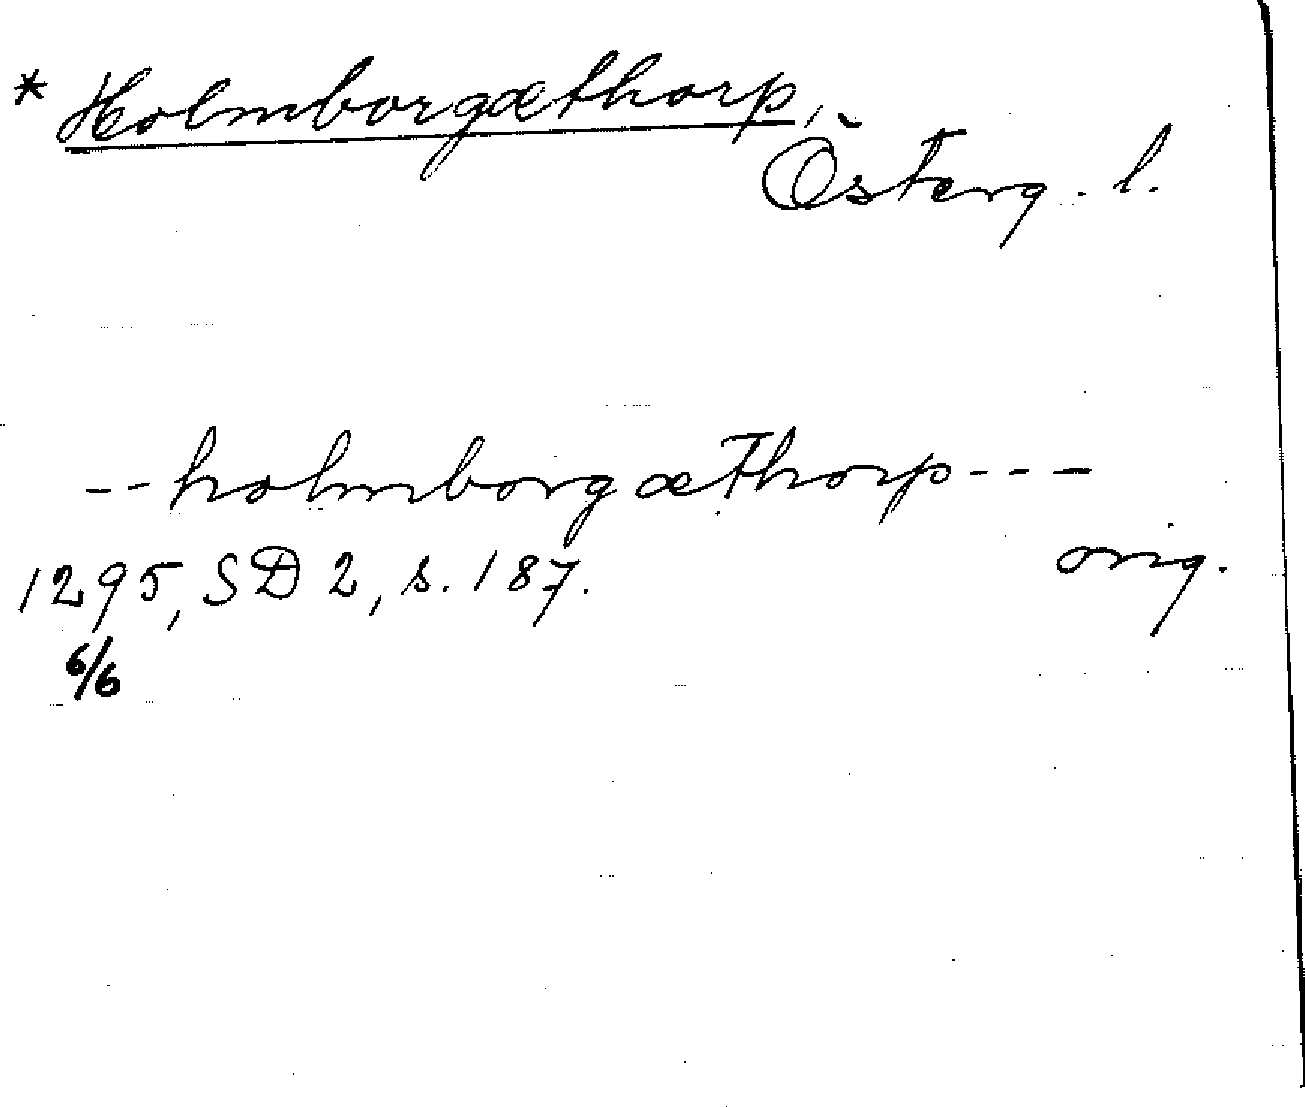 * Holmborgæthorp,
Österg. l.
-- holmborgæthorp ---
1295, SD 2, s. 187. orig.
6/6